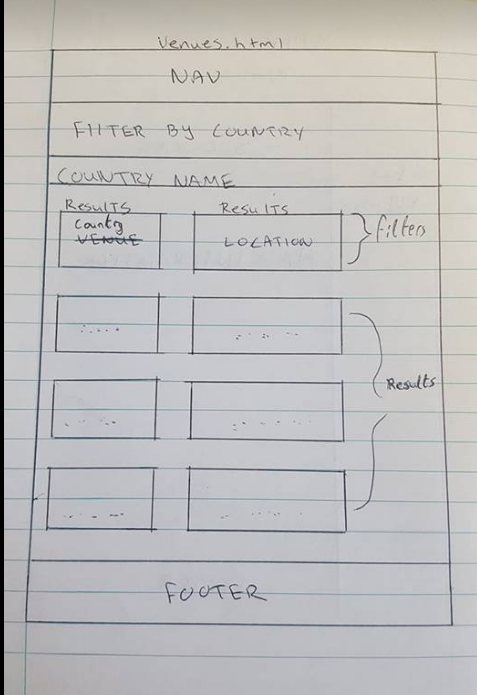 Venues.html
NAV
FIlTER BY COUNTRY
COUNTRY NAME
Results Results
Country
VENUE LOCATION
filters
Results
FOOTER